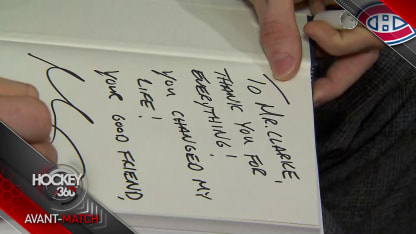 TO MR. CLARKE,
THANK YOU FOR
EVERYTHING!
YOU CHANGED MY
LIFE!
YOUR GOOD FRIEND,
HOCKEY
360
AVANT-MATCH